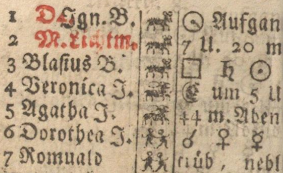 1 D. Ign. B. ☉ Aufgan
2 M. Lichtm. 7 U. 20 m
3 Blasius B. □ ♄ ☉
4 Veronica J. ☾ um 5 U
5 Agatha J. 44 m. Aben
6 Dorothea J. ☌ ♀ ☿
7 Romuald trüb, nebl